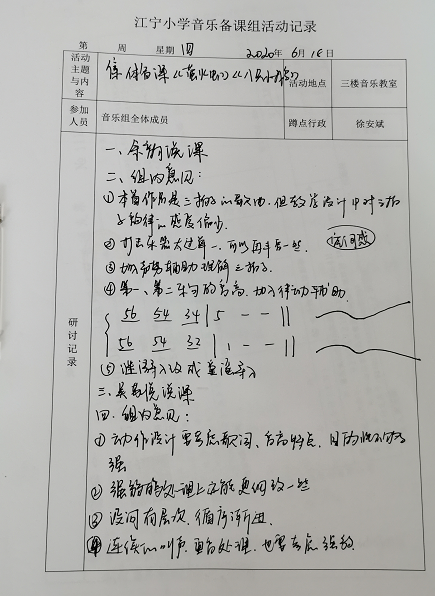 江宁小学音乐备课组活动记录
第 周 星期 四 2020 年 6 月 18 日
活动主题与内容
集体备课《萤火虫》《
活动地点
三楼音乐教室
参加人员
音乐组全体成员
蹲点行政
徐安斌
研讨记录
一、 说课
二、组内意见：
①本首作品是三拍子的歌曲，但教学设计中对三拍
子韵律的感度偏少。
②打击乐器太过单一，可以再丰富一些。
③加动势辅助理解三拍子。
④第一、第二乐句的音高，加入律动辅助。
56 54 34 | 5 - - ||
56 54 32 | 1 - - ||
⑤谜语导入改成直接导入
三、吴 说课
四、组内意见：
①动作设计要考虑歌词、音高特点，目的性
强
②强弱的处理上还能更细致一些
③设问有层次，循序渐进。
④连续的叫声，音高处理，也要考虑强弱。